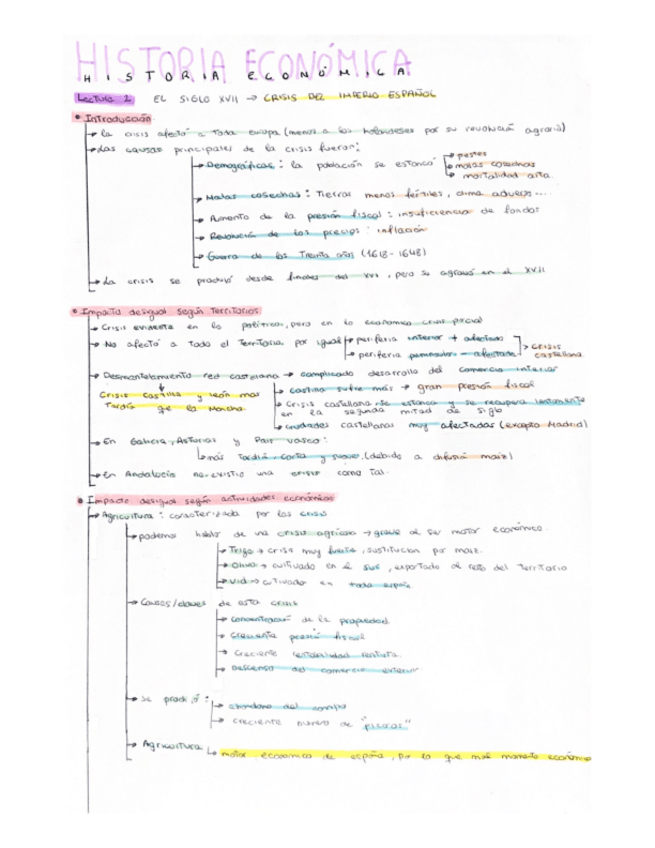 HISTORIA ECONÓMICA
HISTORIA ECONÓMICA
Lectura 2 EL SIGLO XVII → CRISIS DEL IMPERIO ESPAÑOL
Introducción
La crisis afectó a toda europa (menos a los holandeses por su revolución agraria)
Las causas principales de la crisis fueron:
Demográficas: la población se estancó
pestes
malas cosechas
mortalidad alta
Malas cosechas: Tierras menos fértiles, clima adverso...
Aumento de la presión fiscal: insuficiencia de fondos
Revolución de los precios: inflación
Guerra de los Treinta años (1618-1648)
La crisis se produjo desde finales del XVI, pero se agravó en el XVII
Impacto desigual según territorios
Crisis evidente en lo político, pero en lo económico crisis parcial
No afectó a todo el territorio por igual
periferia interior + afectada
periferia peninsular - afectada
CRISIS castellana
Desmantelamiento red castellana → complicado desarrollo del comercio interior
Crisis castilla y león mas tardía que la Mancha
castilla sufre más → gran presión fiscal
Crisis castellana se estanca y se recupera lentamente en la segunda mitad de siglo
ciudades castellanas muy afectadas (excepto Madrid)
En Galicia, Asturias y País vasco:
más tardía, corta y suave (debido a difusión maíz)
En Andalucía no existió una crisis como tal.
Impacto desigual según actividades económicas
Agricultura: caracterizada por las crisis
podemos hablar de una crisis agrícola → grave al ser motor económico
Trigo → crisis muy fuerte, sustitución por maíz.
Olivo → cultivado en el sur, exportado al resto del territorio
Vid → cultivado en toda españa.
Causas/claves de esta crisis
Concentración de la propiedad
Creciente presión fiscal
Creciente rentabilidad rentista
Descenso del comercio exterior
Se produjó:
abandono del campo
creciente número de "pícaros"
Agricultura
motor económico de españa, por lo que mal momento económico